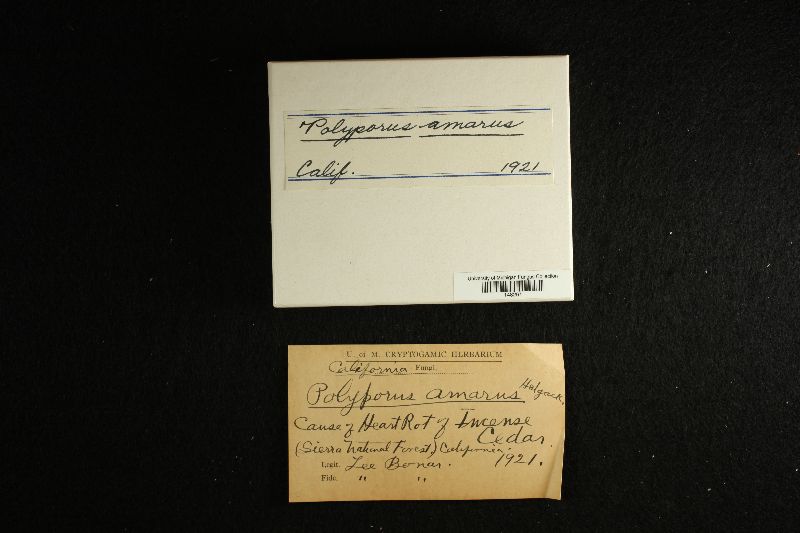 Polyporus amarus
Calif. 1921
University of Michigan Fungus Collection
U. of M. CRYPTOGAMIC HERBARIUM
California Fungi.
Polyporus amarus
Cause of Heart Rot of Incense
Cedar.
(Sierra National Forest) California.
1921.
Legit. Lee Bonar.
Fide. " "